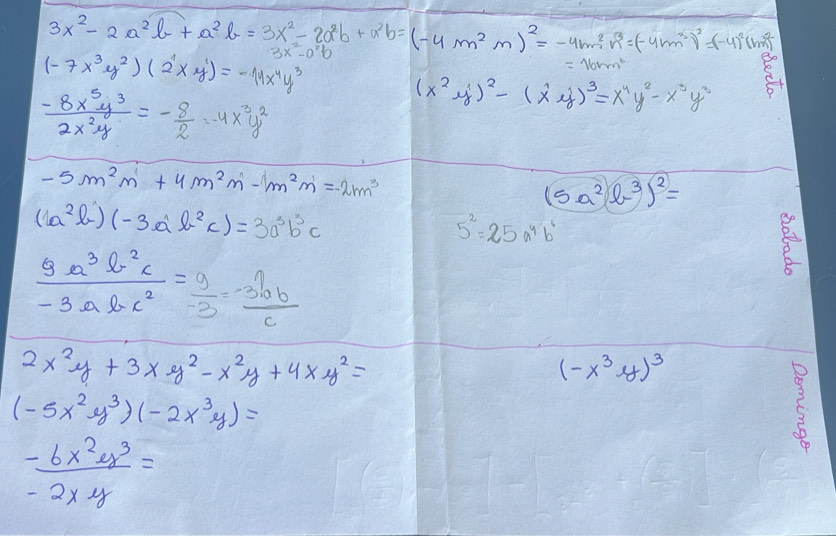 3x² - 2a²b + a²b = 3x² - 2a²b + a²b =
3x² - a²b
(-7x³y²)(2xy) = -14x⁴y³
-8x⁵y³/2x²y = -8/2 = -4x³y²
(-4m²n)² =
= 16m⁶
(x²y)² - (xy)³ = x⁴y² - x³y³
Serta
-5m²n + 4m²n - 1m²n = -2m³
(1a²b)(-3ab²c) = 3a³b³c
9a³b²c/-3abc² = 9/-3 =
(5a²b³)² =
5² = 25a⁴b⁶
Sabado
2x²y + 3xy² - x²y + 4xy² =
(-5x²y³)(-2x³y) =
-6x²y³/-2xy =
(-x³y)³
Domingo